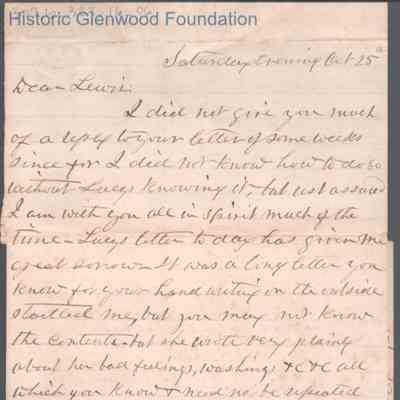 Historic Glenwood Foundation
Saturday Evening Oct 25th
Dear Lewis.
I did not give you much
of a reply to your letter of some weeks
since for I did not know how to do so
without Lucys knowing it, but rest assured
I am with you all in spirit much of the
time – Lucys letter to day has given me
great sorrow – It was a long letter you
know for your hand writing on the outside
startled me, but you may not know
the contents – but she wrote very plainly
about her bad feelings, washings &c &c all
which you know & need not be repeated